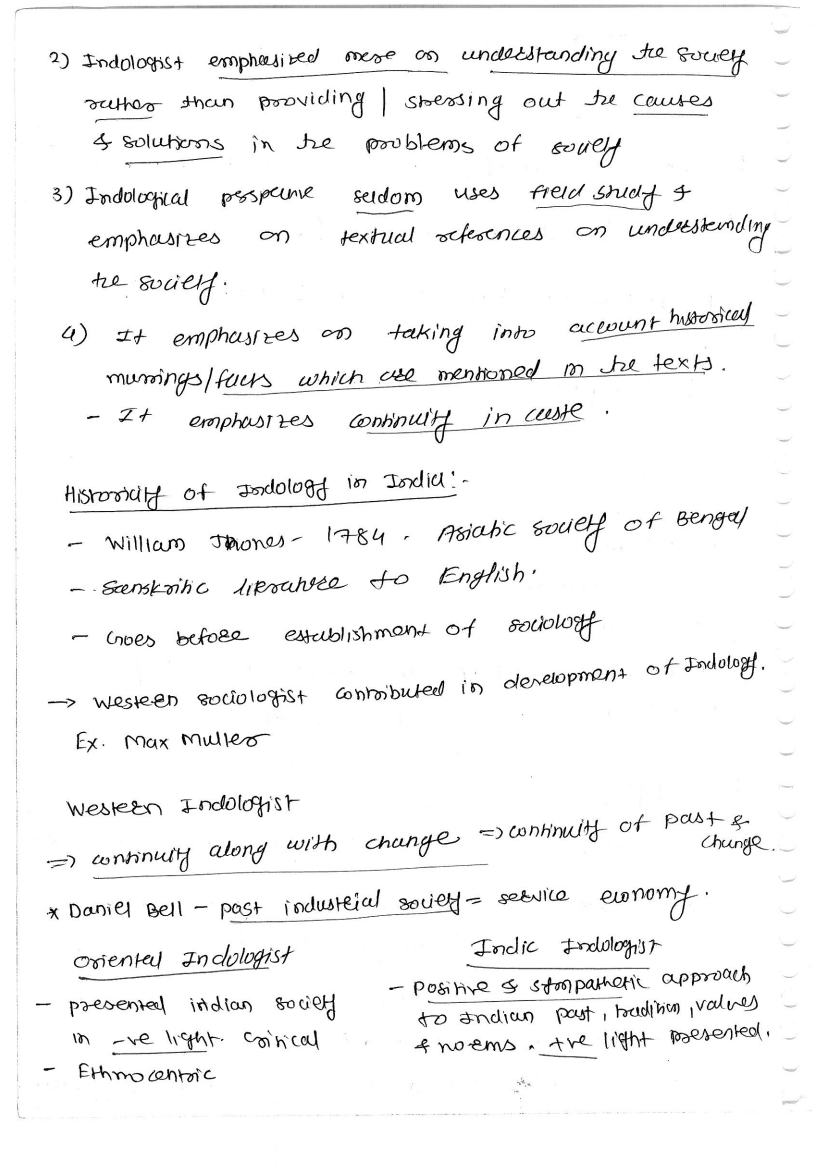 2) Indologist emphasized more on understanding the society
rather than providing | stressing out the causes
& solutions in the problems of society
3) Indological perspective seldom uses field study &
emphasizes on textual references on understanding
the society.
4) It emphasizes on taking into account historical
facts which are mentioned in the texts.
- It emphasizes continuity in caste.
Historicity of Indology in India:-
- William Jhones - 1784. Asiatic society of Bengal
- Sanskritic literature to English.
- Goes before establishment of sociology
→ Western sociologist contributed in development of Indology.
Ex. Max Muller
Western Indologist
⇒ continuity along with change ⇒ continuity of past &
change.
* Daniel Bell - past industrial society = service economy.
Oriental Indologist
- presented indian society
in -ve light. Critical
- Ethnocentric
Indic Indologist
- Positive & sympathetic approach
to Indian past, tradition, values
& norms. +ve light presented.